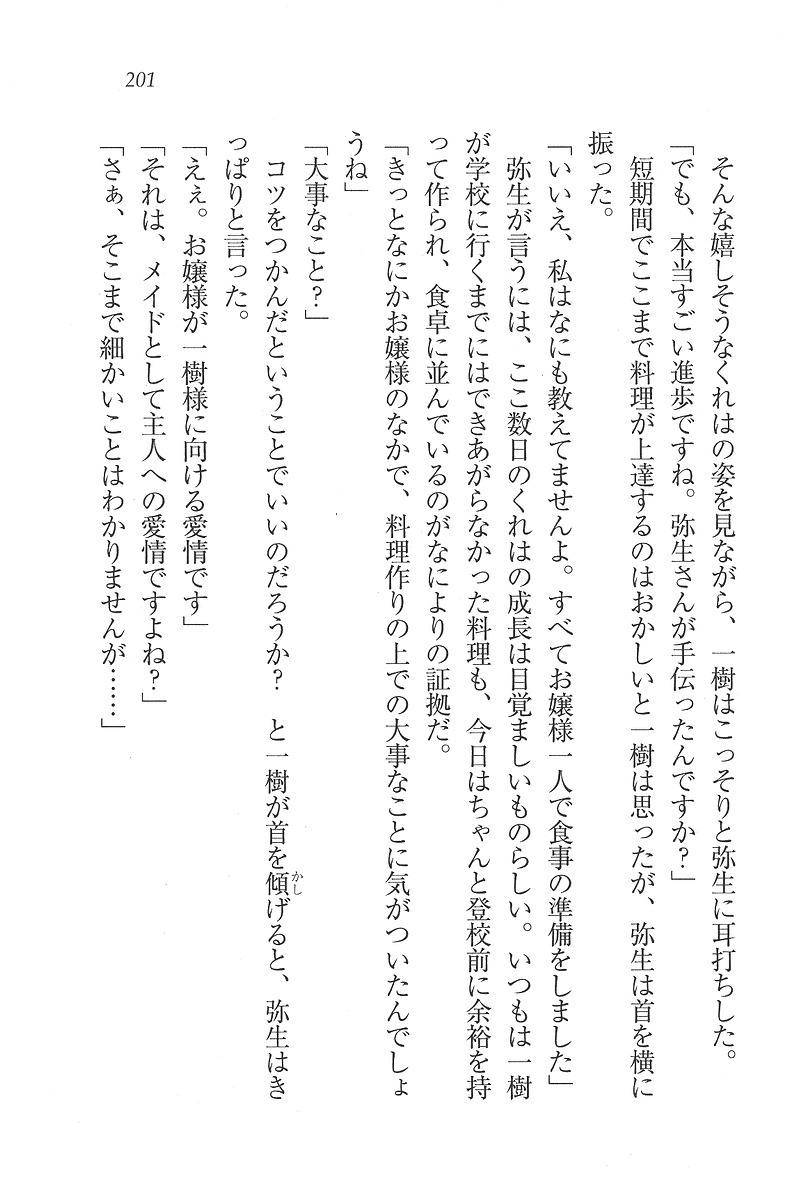 201
　そんな嬉しそうなくれはの姿を見ながら、一樹はこっそりと弥生に耳打ちした。
「でも、本当すごい進歩ですね。弥生さんが手伝ったんですか？」
　短期間でここまで料理が上達するのはおかしいと一樹は思ったが、弥生は首を横に
振った。
「いいえ、私はなにも教えてませんよ。すべてお嬢様一人で食事の準備をしました」
　弥生が言うには、ここ数日のくれはの成長は目覚ましいものらしい。いつもは一樹
が学校に行くまでにはできあがらなかった料理も、今日はちゃんと登校前に余裕を持
って作られ、食卓に並んでいるのがなによりの証拠だ。
「きっとなにかお嬢様のなかで、料理作りの上での大事なことに気がついたんでしょ
うね」
「大事なこと？」
　コツをつかんだということでいいのだろうか？　と一樹が首を傾げると、弥生はき
かし
っぱりと言った。
「えぇ。お嬢様が一樹様に向ける愛情です」
「それは、メイドとして主人への愛情ですよね？」
「さぁ、そこまで細かいことはわかりませんが……」